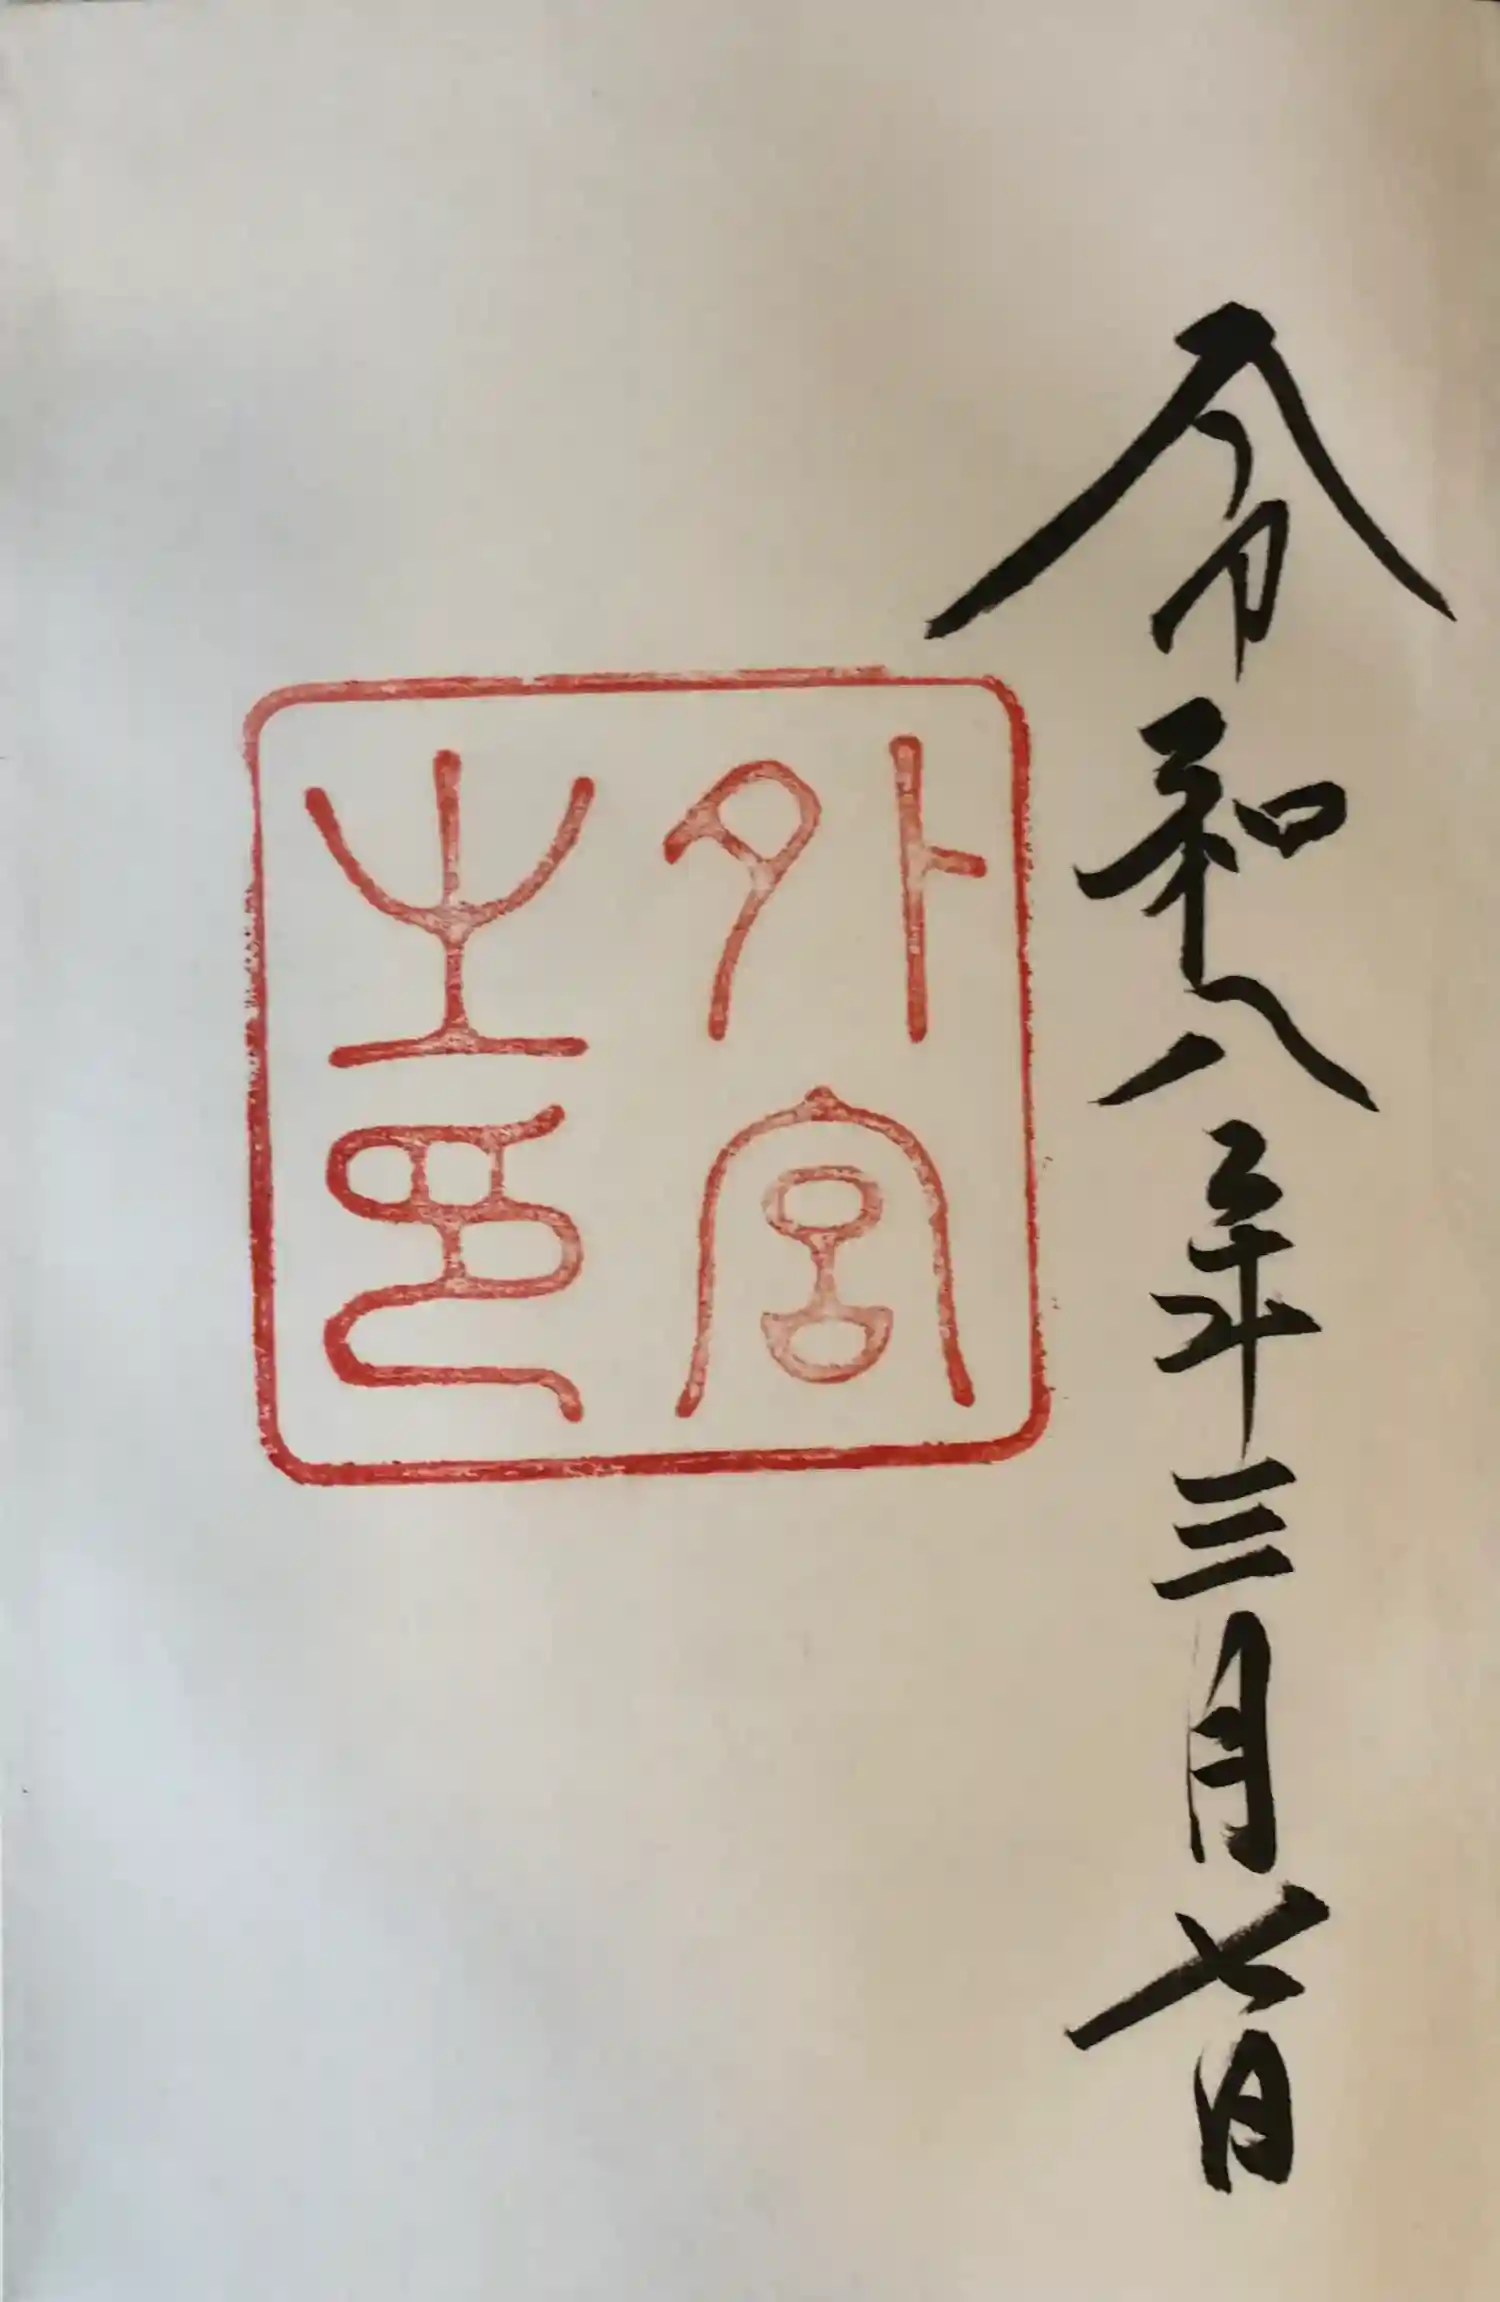 令和八年三月七日
外宮
之印